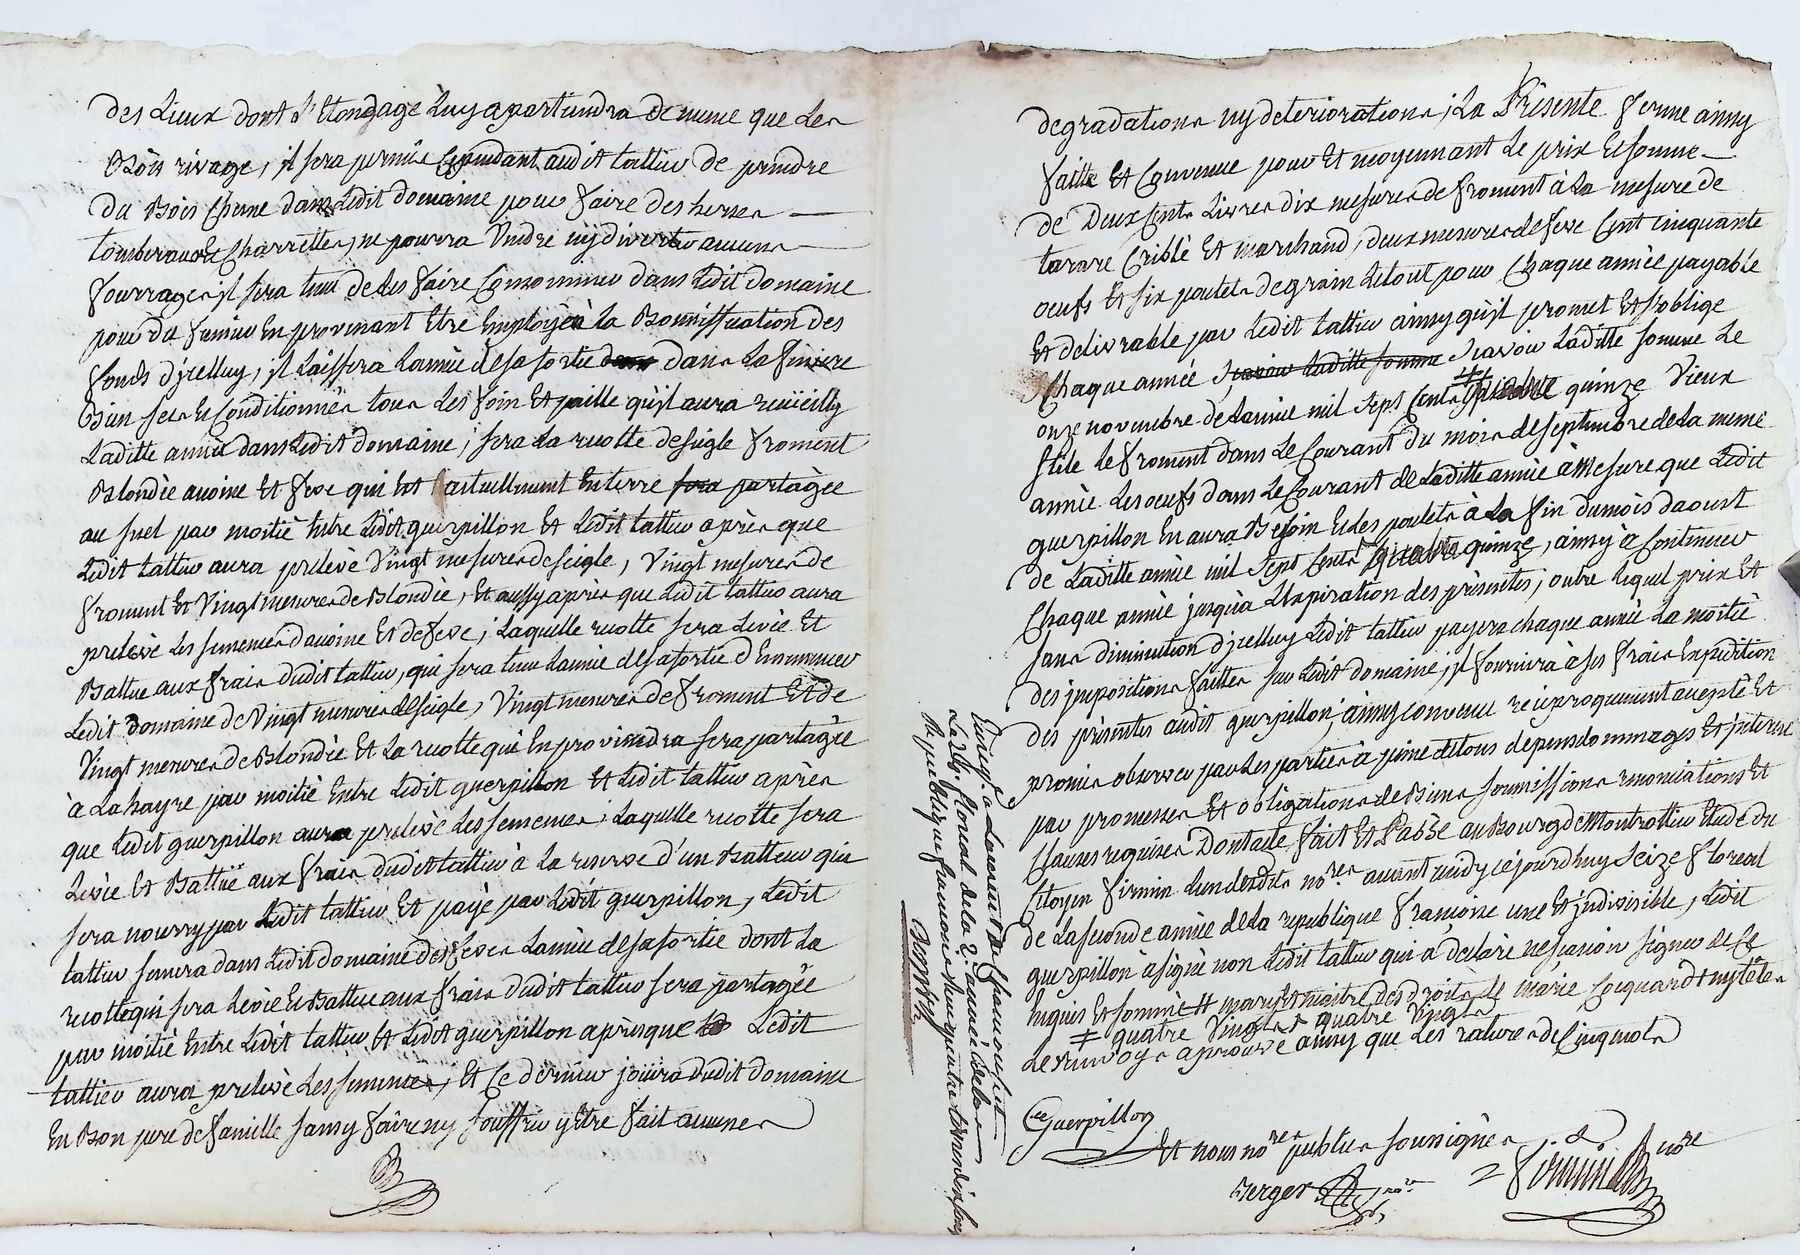 des Lieux dont L'Elongage Luy apartiendra de meme que Les
Bois rivage, il sera permis Cependant audit tattiw de prendre
du Bois Chene dans Ledit domaine pour faire des herses
tomberaux Et Charrettes, ne pourra Vendre ny divertir aucuns
fourrages il sera tenu de Les faire Consommer dans Ledit domaine
pour du fumier En provenant Etre Employé à La Bonniffication des
fonds d'jcelluy, il Laissera L'année de sa sortie dans La finiere
Bien secs Et Conditionnés tous Les foin Et paille qu'il aura recüeilly
Laditte année dans Ledit domaine, sera La recolte de seigle froment
Blondée avoine Et feve qui Est actuellement En terre sera partagée
au suel par moitié Entre Ledit guerpillon Et Ledit tattiw après que
Ledit tattiw aura prélevé Vingt mesures de seigle, Vingt mesures de
froment Et Vingt mesures de Blondée, Et aussy après que Ledit tattiw aura
prelevé Les semences d'avoine Et de feve, Laquelle recolte sera Levée Et
Battue aux frais dudit tattiw, qui sera tenu L'année de sa sortie d'Ensemencer
Ledit domaine de Vingt mesures de seigle, Vingt mesures de froment Et de
Vingt mesures de Blondée Et La recolte qui En proviendra sera partagée
à La hayre par moitié Entre Ledit guerpillon Et Ledit tattiw après
que Ledit guerpillon aura prelevé Les semences, Laquelle recolte sera
Levée Et Battüe aux frais dudit tattiw à La reserve d'un Batteur qui
sera nourry par Ledit tattiw Et payé par Ledit guerpillon, Ledit
tattiw semera dans Ledit domaine des feves L'année de sa sortie dont La
recolte qui sera Levée Et Battue aux frais dudit tattiw sera partagée
par moitié Entre Ledit tattiw Et Ledit guerpillon après que Ledit
tattiw aura prelevé Les semences, Et Ce dernier joüira dudit domaine
En Bon pere de famille sans y faire ny souffrir y Etre fait aucunes
degradations ny deteriorations, La Présente ferme ainsy
faitte Et Convenue pour Et moyennant Le prix Et somme
de Deux Cents Livres dix mesures de froment à La mesure de
tarare Criblé Et marchand, deux mesures de feve Cent Cinquante
oeufs Et six poulets de grain Le tout pour Chaque année payable
Et delivrable par Ledit tattiw ainsy qu'il promet Et s'oblige
Chaque année Scavoir Laditte somme Scavoir Laditte somme Le
onze novembre de L'année mil sept Cent ‡ quinze Vieux
stile Le froment dans Le Courant du mois de septembre de La meme
année Les oeufs dans Le Courant de Laditte année à mesure que Ledit
guerpillon En aura Besoin Et des poulets à La fin du mois d'aoust
de Laditte année mil Sept Cent quinze, ainsy à Continuer
Chaque année jusqu'à L'Expiration des présentes, outre Lequel prix Et
sans diminution d'jcelluy Ledit tattiw payera chaque année La moitié
des jmpositions faittes sur Ledit domaine, il fournira à ses frais Expédition
des présentes audit guerpillon, ainsy convenu réciproquement accepté Et
promis observer par Les parties à peine de tous depens dommages Et jnterests
par promesses Et obligations de Biens soumissions renonciations Et
Clauses requises Dont acte fait Et Passé au Bourg de Montrottier Etude du
Citoyen firmin L'un desdits nores avant midy cejourd'huy Seize floreal
de La seconde année de La republique françoise une Et jndivisible, Ledit
guerpillon a signé non Ledit tattiw qui a déclaré ne scavoir signer de Ce
Enquis Et sommé ‡ mary Et maitre des droits de marie Cocquard
‡ quatre Vingt ‡ quatre Vingt
Le renvoys aprouvé ainsy que Les ratures de Cinq mots
Guerpillon
Et nous nores publics soussignés
Verger nore
2 firmin nore
Enreg. a
Le 29. floreal de La 2e. année de La
Republique francaise